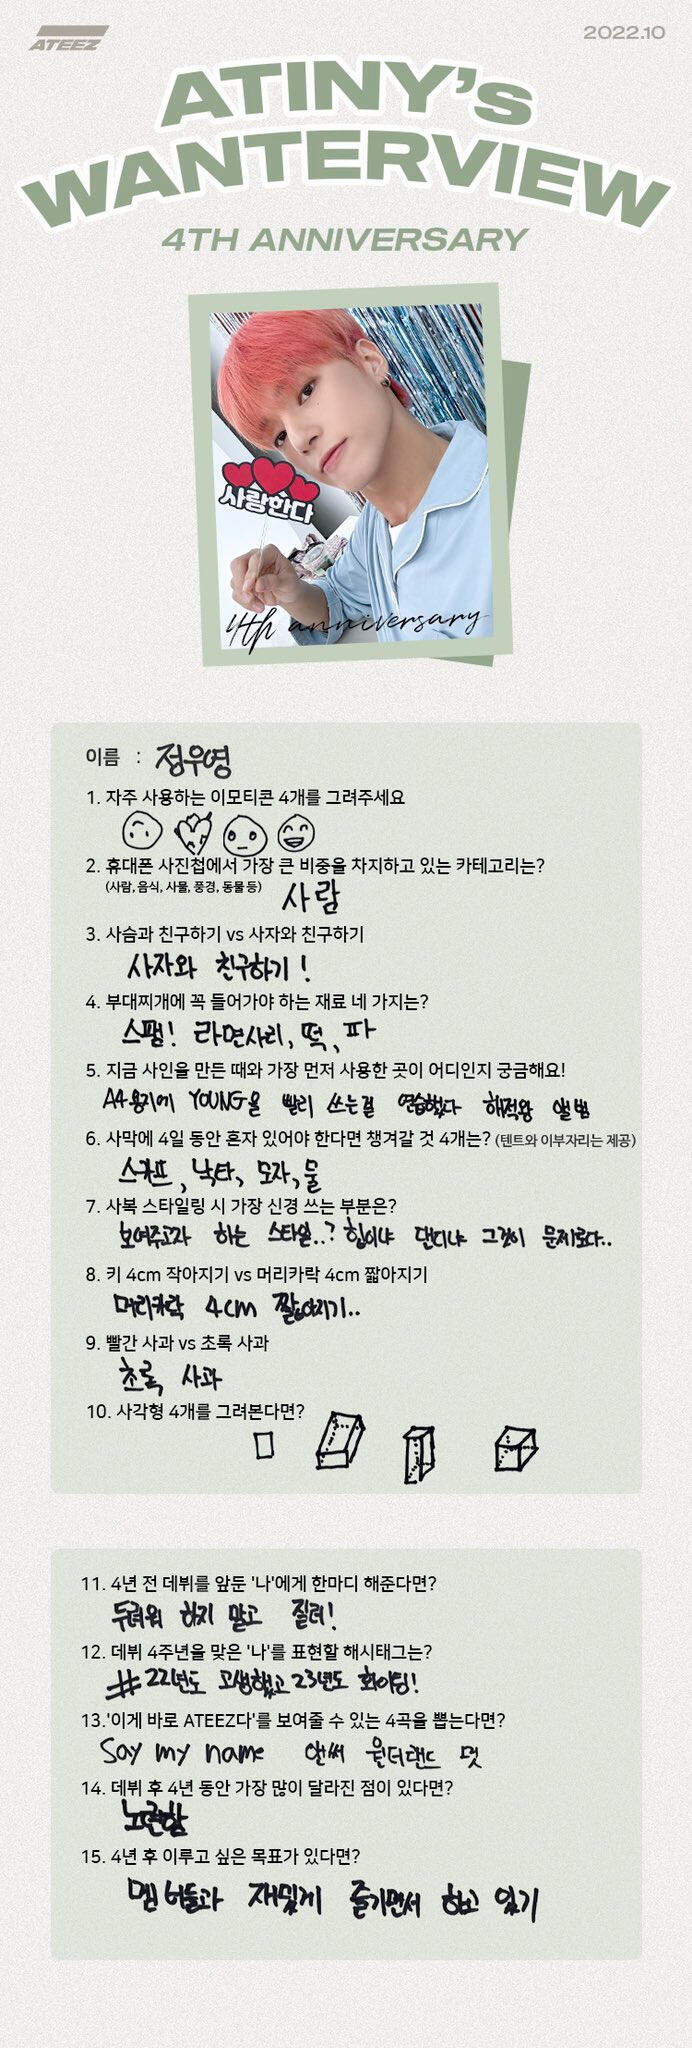 ATEEZ
2022.10
ATINY's
WANTERVIEW
4TH ANNIVERSARY
사랑한다
4th anniversary
이름 : 정우영
1. 자주 사용하는 이모티콘 4개를 그려주세요
2. 휴대폰 사진첩에서 가장 큰 비중을 차지하고 있는 카테고리는?
(사람, 음식, 사물, 풍경, 동물 등)
사람
3. 사슴과 친구하기 vs 사자와 친구하기
사자와 친구하기!
4. 부대찌개에 꼭 들어가야 하는 재료 네 가지는?
스팸! 라면사리, 떡, 파
5. 지금 사인을 만든 때와 가장 먼저 사용한 곳이 어디인지 궁금해요!
A4용지에 YOUNG을 빨리 쓰는걸 연습했다 해적왕 앨범
6. 사막에 4일 동안 혼자 있어야 한다면 챙겨갈 것 4개는? (텐트와 이부자리는 제공)
스카프, 낙타, 모자, 물
7. 사복 스타일링 시 가장 신경 쓰는 부분은?
보여주고자 하는 스타일..? 힙이냐 댄디냐 그것이 문제로다..
8. 키 4cm 작아지기 vs 머리카락 4cm 짧아지기
머리카락 4cm 짧아지기..
9. 빨간 사과 vs 초록 사과
초록 사과
10. 사각형 4개를 그려본다면?
11. 4년 전 데뷔를 앞둔 '나'에게 한마디 해준다면?
두려워 하지 말고 질러!
12. 데뷔 4주년을 맞은 '나'를 표현할 해시태그는?
#22년도 고생했고 23년도 화이팅!
13.'이게 바로 ATEEZ다'를 보여줄 수 있는 4곡을 뽑는다면?
Say my name 앤써 원더랜드 멋
14. 데뷔 후 4년 동안 가장 많이 달라진 점이 있다면?
노련함
15. 4년 후 이루고 싶은 목표가 있다면?
멤버들과 재밌게 즐기면서 하고 있기